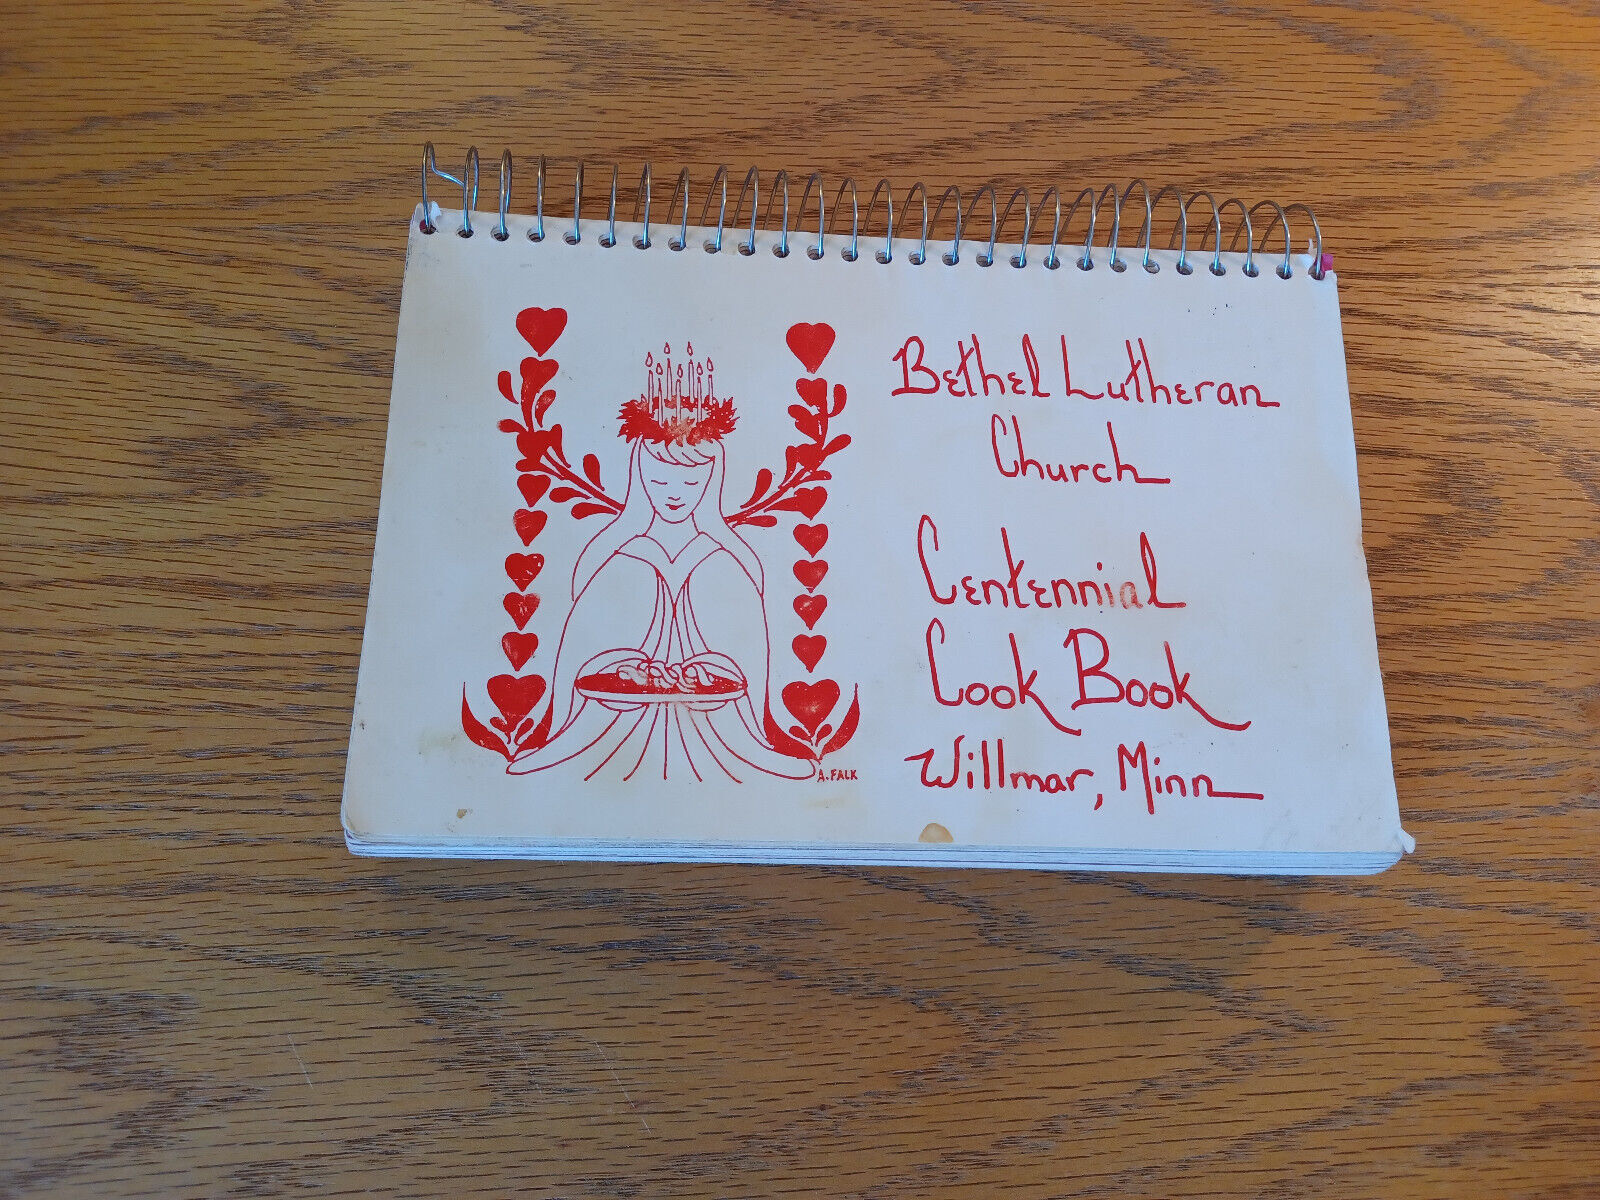 Bethel Lutheran
Church
Centennial
Cook Book
Willmar, Minn
A. FALK